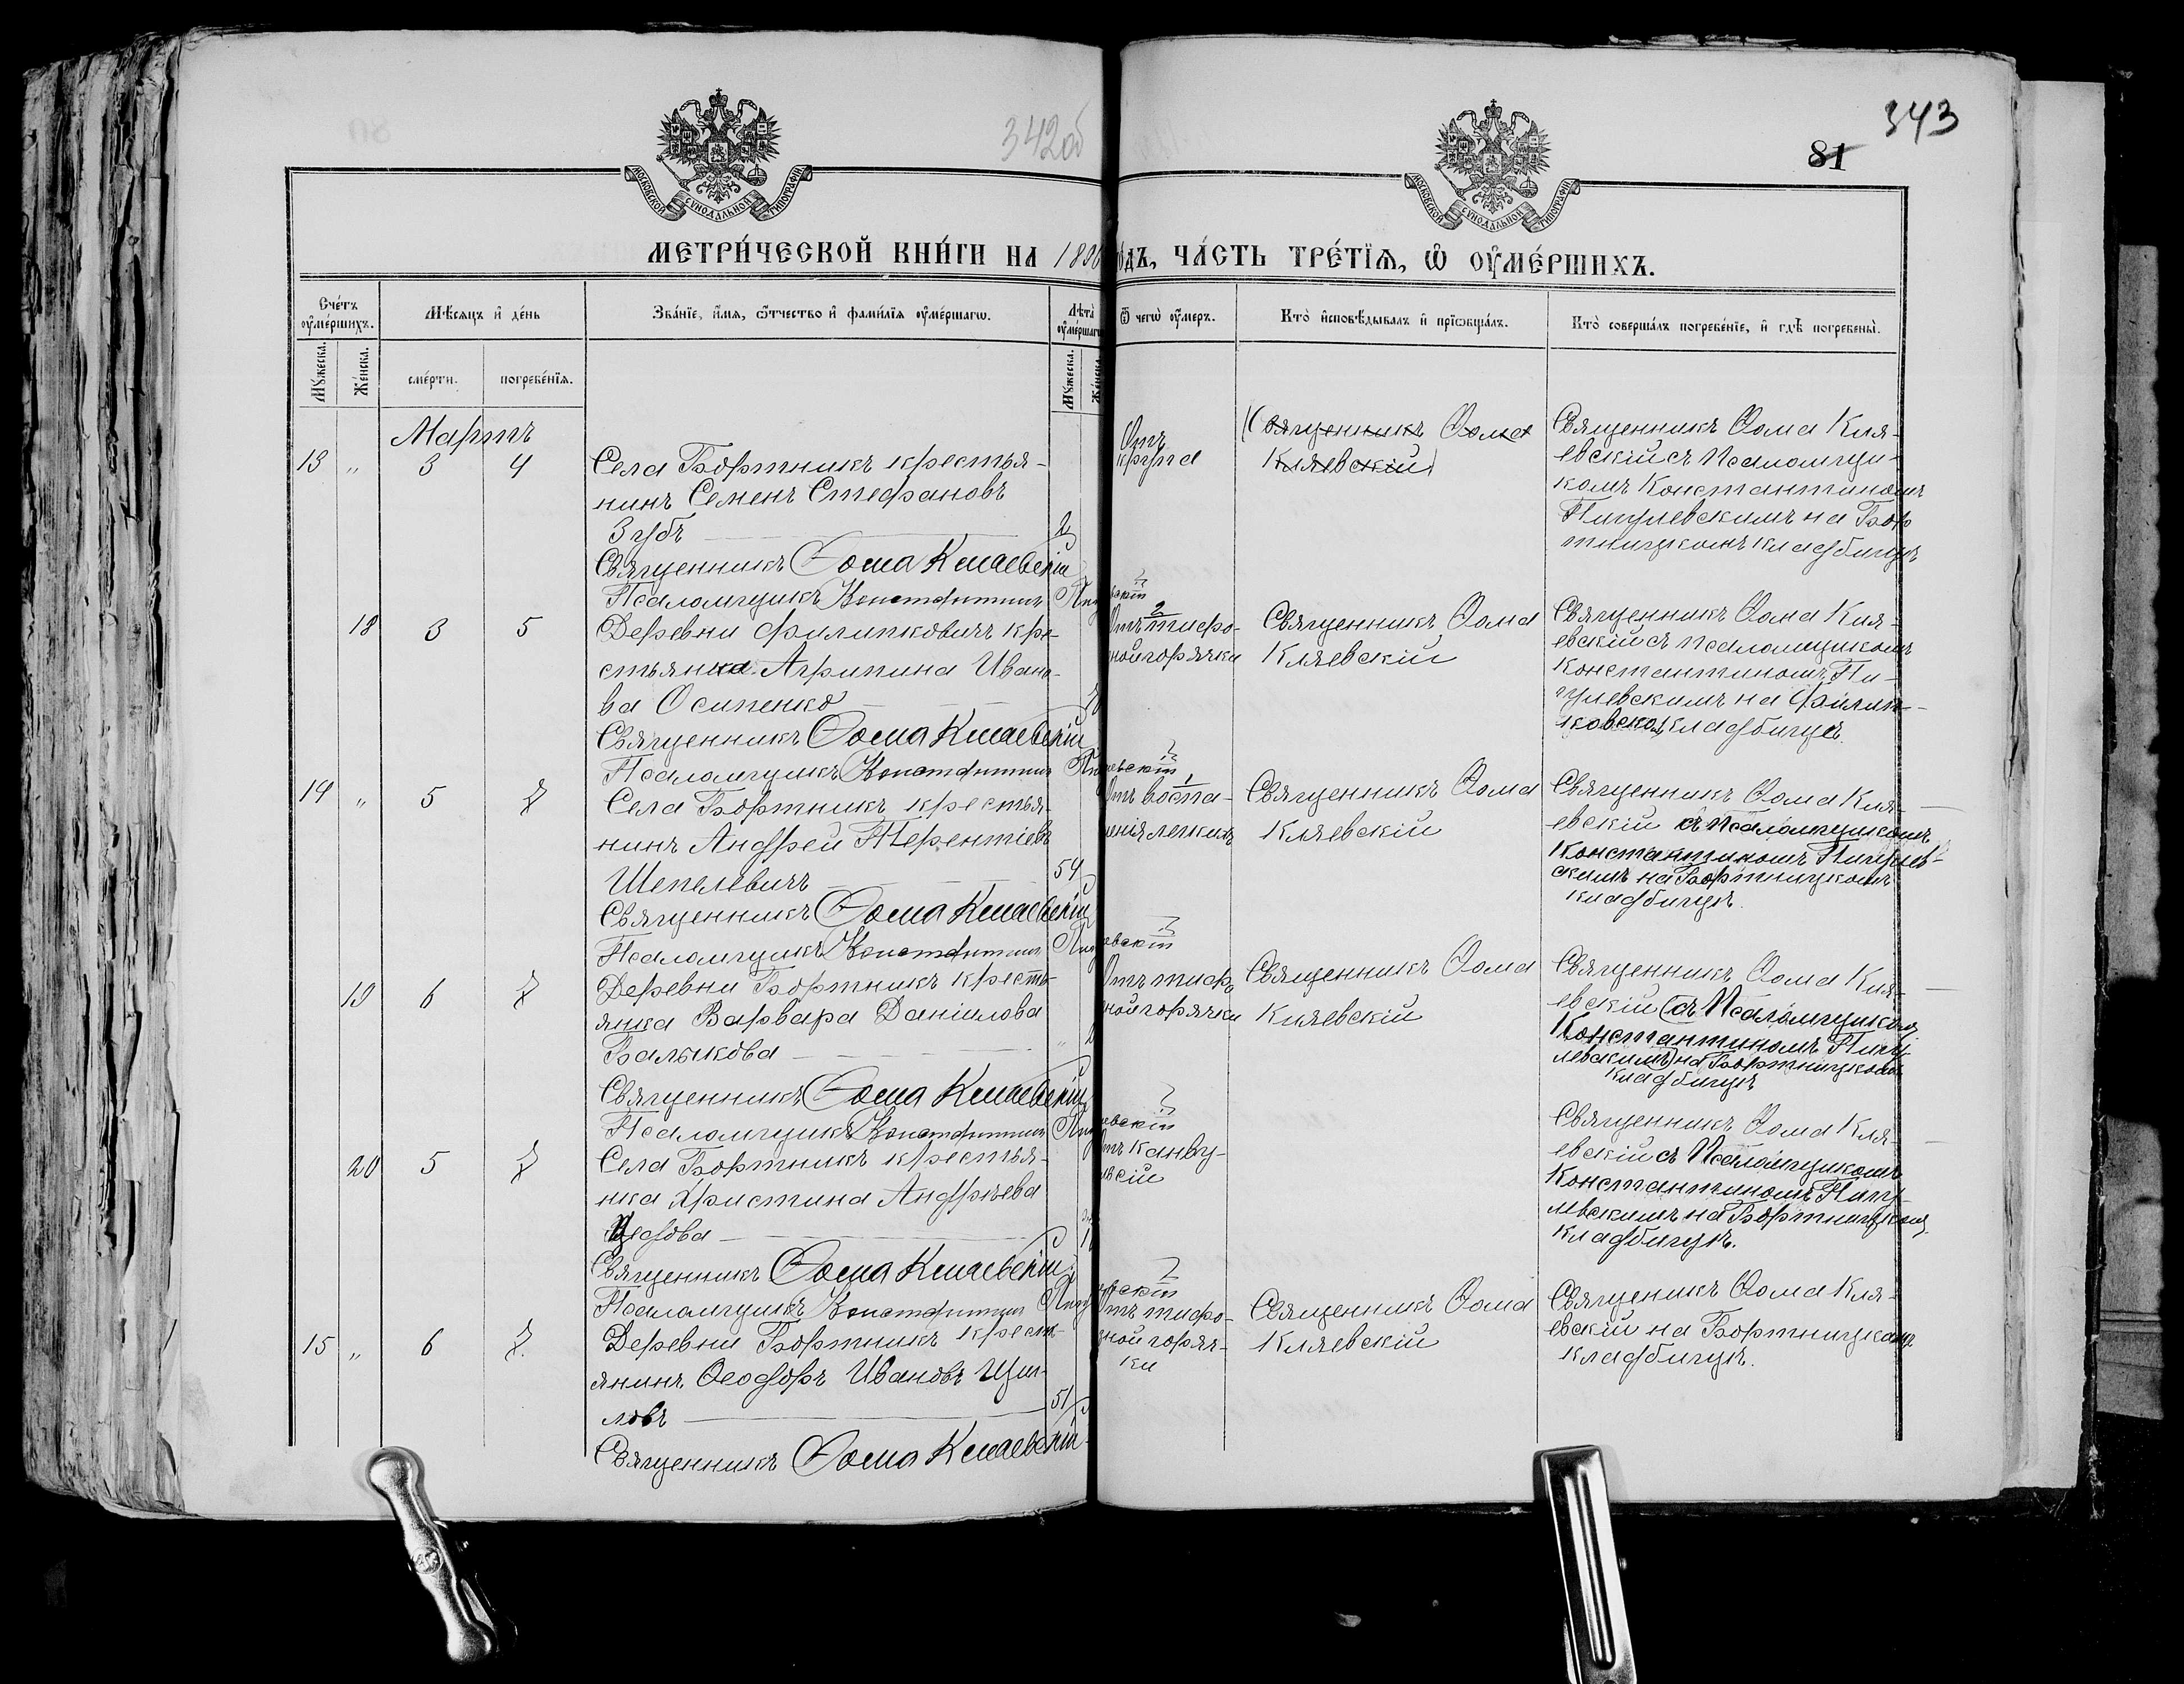 342об
343
81
МОСКОВСКОЙ СѴНОДАЛЬНОЙ ТИПОГРАФІИ
МОСКОВСКОЙ СѴНОДАЛЬНОЙ ТИПОГРАФІИ
МЕТРИ́ЧЕСКОЙ КНИ́ГИ НА 188 ОДЪ, ЧА́СТЬ ТРЕ́ТЇѦ, Ѡ҆ ОУ҆МЕ́РШИХЪ.
Сче́тъ оу҆ме́ршихъ.
Мѣ́сяцъ и҆ де́нь
Зва́нїе, и҆́мѧ, ѻ҆́тчество и҆ фами́лїѧ оу҆ме́ршагѡ.
Лѣ́та оу҆ме́ршагѡ
Ѿ чегѡ̀ оу҆́меръ.
Кто̀ и҆сповѣ́дывалъ и҆ прїѡбща́лъ.
Кто̀ соверша́лъ погребе́нїе, и҆ гдѣ̀ погребены̀.
Мꙋ́жеска.
Же́нска.
сме́рти.
погребе́нїѧ.
Мꙋ́жеска.
Же́нска.
Мартъ
13 „ 3 4
Села Бортникъ крестья-
нинъ Семенъ Стефановъ
Зубъ 2
Священникъ Ѳома Кляевскій
Псаломщикъ Константинъ Пигулевскій
Отъ
крупа
(Священникъ Ѳома
Кляевскій)
Священникъ Ѳома Кля-
евскій съ Псаломщи-
комъ Константиномъ
Пигулевскимъ на Бор
тницкомъ кладбищѣ
18 3 5
Деревни Филипковичъ кре-
стьянка Агрипина Ивано-
ва Осипенко
Священникъ Ѳома Кляевскій
Псаломщикъ Константинъ Пигулевскій
Отъ тифо-
зной горячки
Священникъ Ѳома
Кляевскій
Священникъ Ѳома Кля-
евскій съ псаломщикомъ
Константиномъ Пи-
гулевскимъ на Филип-
ковском кладбищѣ.
14 „ 5 7
Села Бортникъ крестья-
нинъ Андрей Терентіевъ
Шепелевичъ 54
Священникъ Ѳома Кляевскій
Псаломщикъ Константинъ Пигулевскій
Отъ воспа-
ленія легкихъ
Священникъ Ѳома
Кляевскій
Священникъ Ѳома Кля-
евскій съ Псаломщикомъ
Константиномъ Пигулев-
скимъ на Бортницкомъ
кладбищѣ.
19 6 7
Деревни Бортникъ кресть-
янка Варвара Даніилова
Балыкова
Священникъ Ѳома Кляевскій
Псаломщикъ Константинъ Пигулевскій
Отъ тифо
зной горячки
Священникъ Ѳома
Кляевскій
Священникъ Ѳома Кля-
евскій (съ Псаломщикомъ
Константиномъ Пигу-
левскимъ) на Бортницкомъ
кладбищѣ
20 5 7
Села Бортникъ крестья-
нка Христина Андреева
Священникъ Ѳома Кляевскій
Псаломщикъ Константинъ Пигулевскій
Отъ канву-
льсіи
Священникъ Ѳома Кля-
евскій съ Псаломщикомъ
Константиномъ Пигу-
левскимъ на Бортницкомъ
кладбищѣ.
15 „ 6 7.
Деревни Бортникъ крест-
янинъ Ѳеодоръ Ивановъ Щи-
ловъ 51
Священникъ Ѳома Кляевскій
Отъ тифо-
зной горяч-
ки
Священникъ Ѳома
Кляевскій
Священикъ Ѳома Кля-
евскій на Бортницкомъ
кладбищѣ.